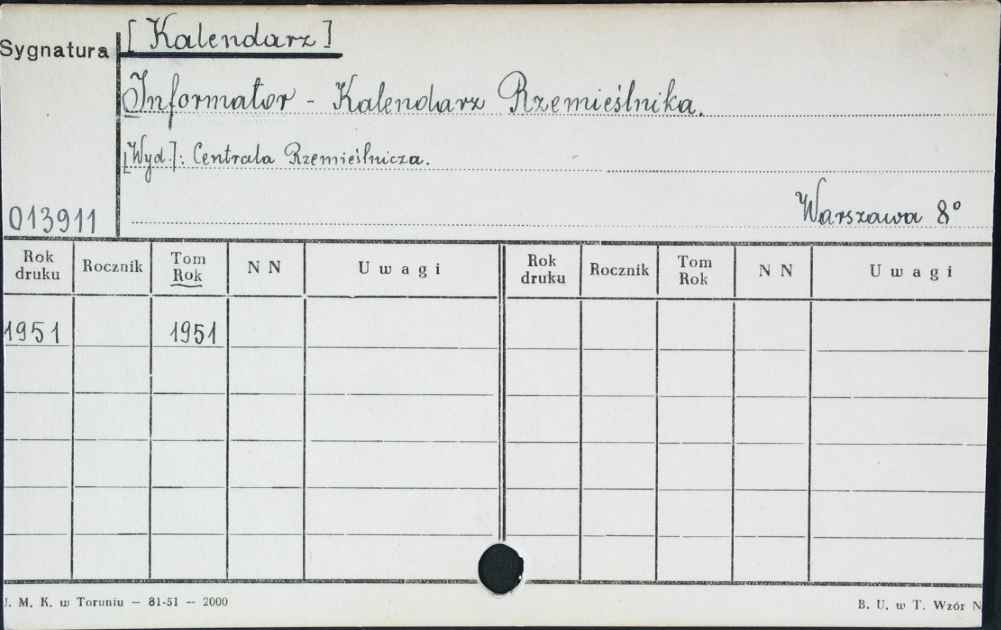 [Kalendarz]
Sygnatura
Informator - Kalendarz Rzemieślnika.
[Wyd.]: Centrala Rzemieślnicza.
Warszawa 8°
013911
Rok druku Rocznik Tom Rok N N Uwagi Rok druku Rocznik Tom Rok N N Uwagi
1951 1951
J. M. K. w Toruniu — 81-51 — 2000 B. U. w T. Wzór N